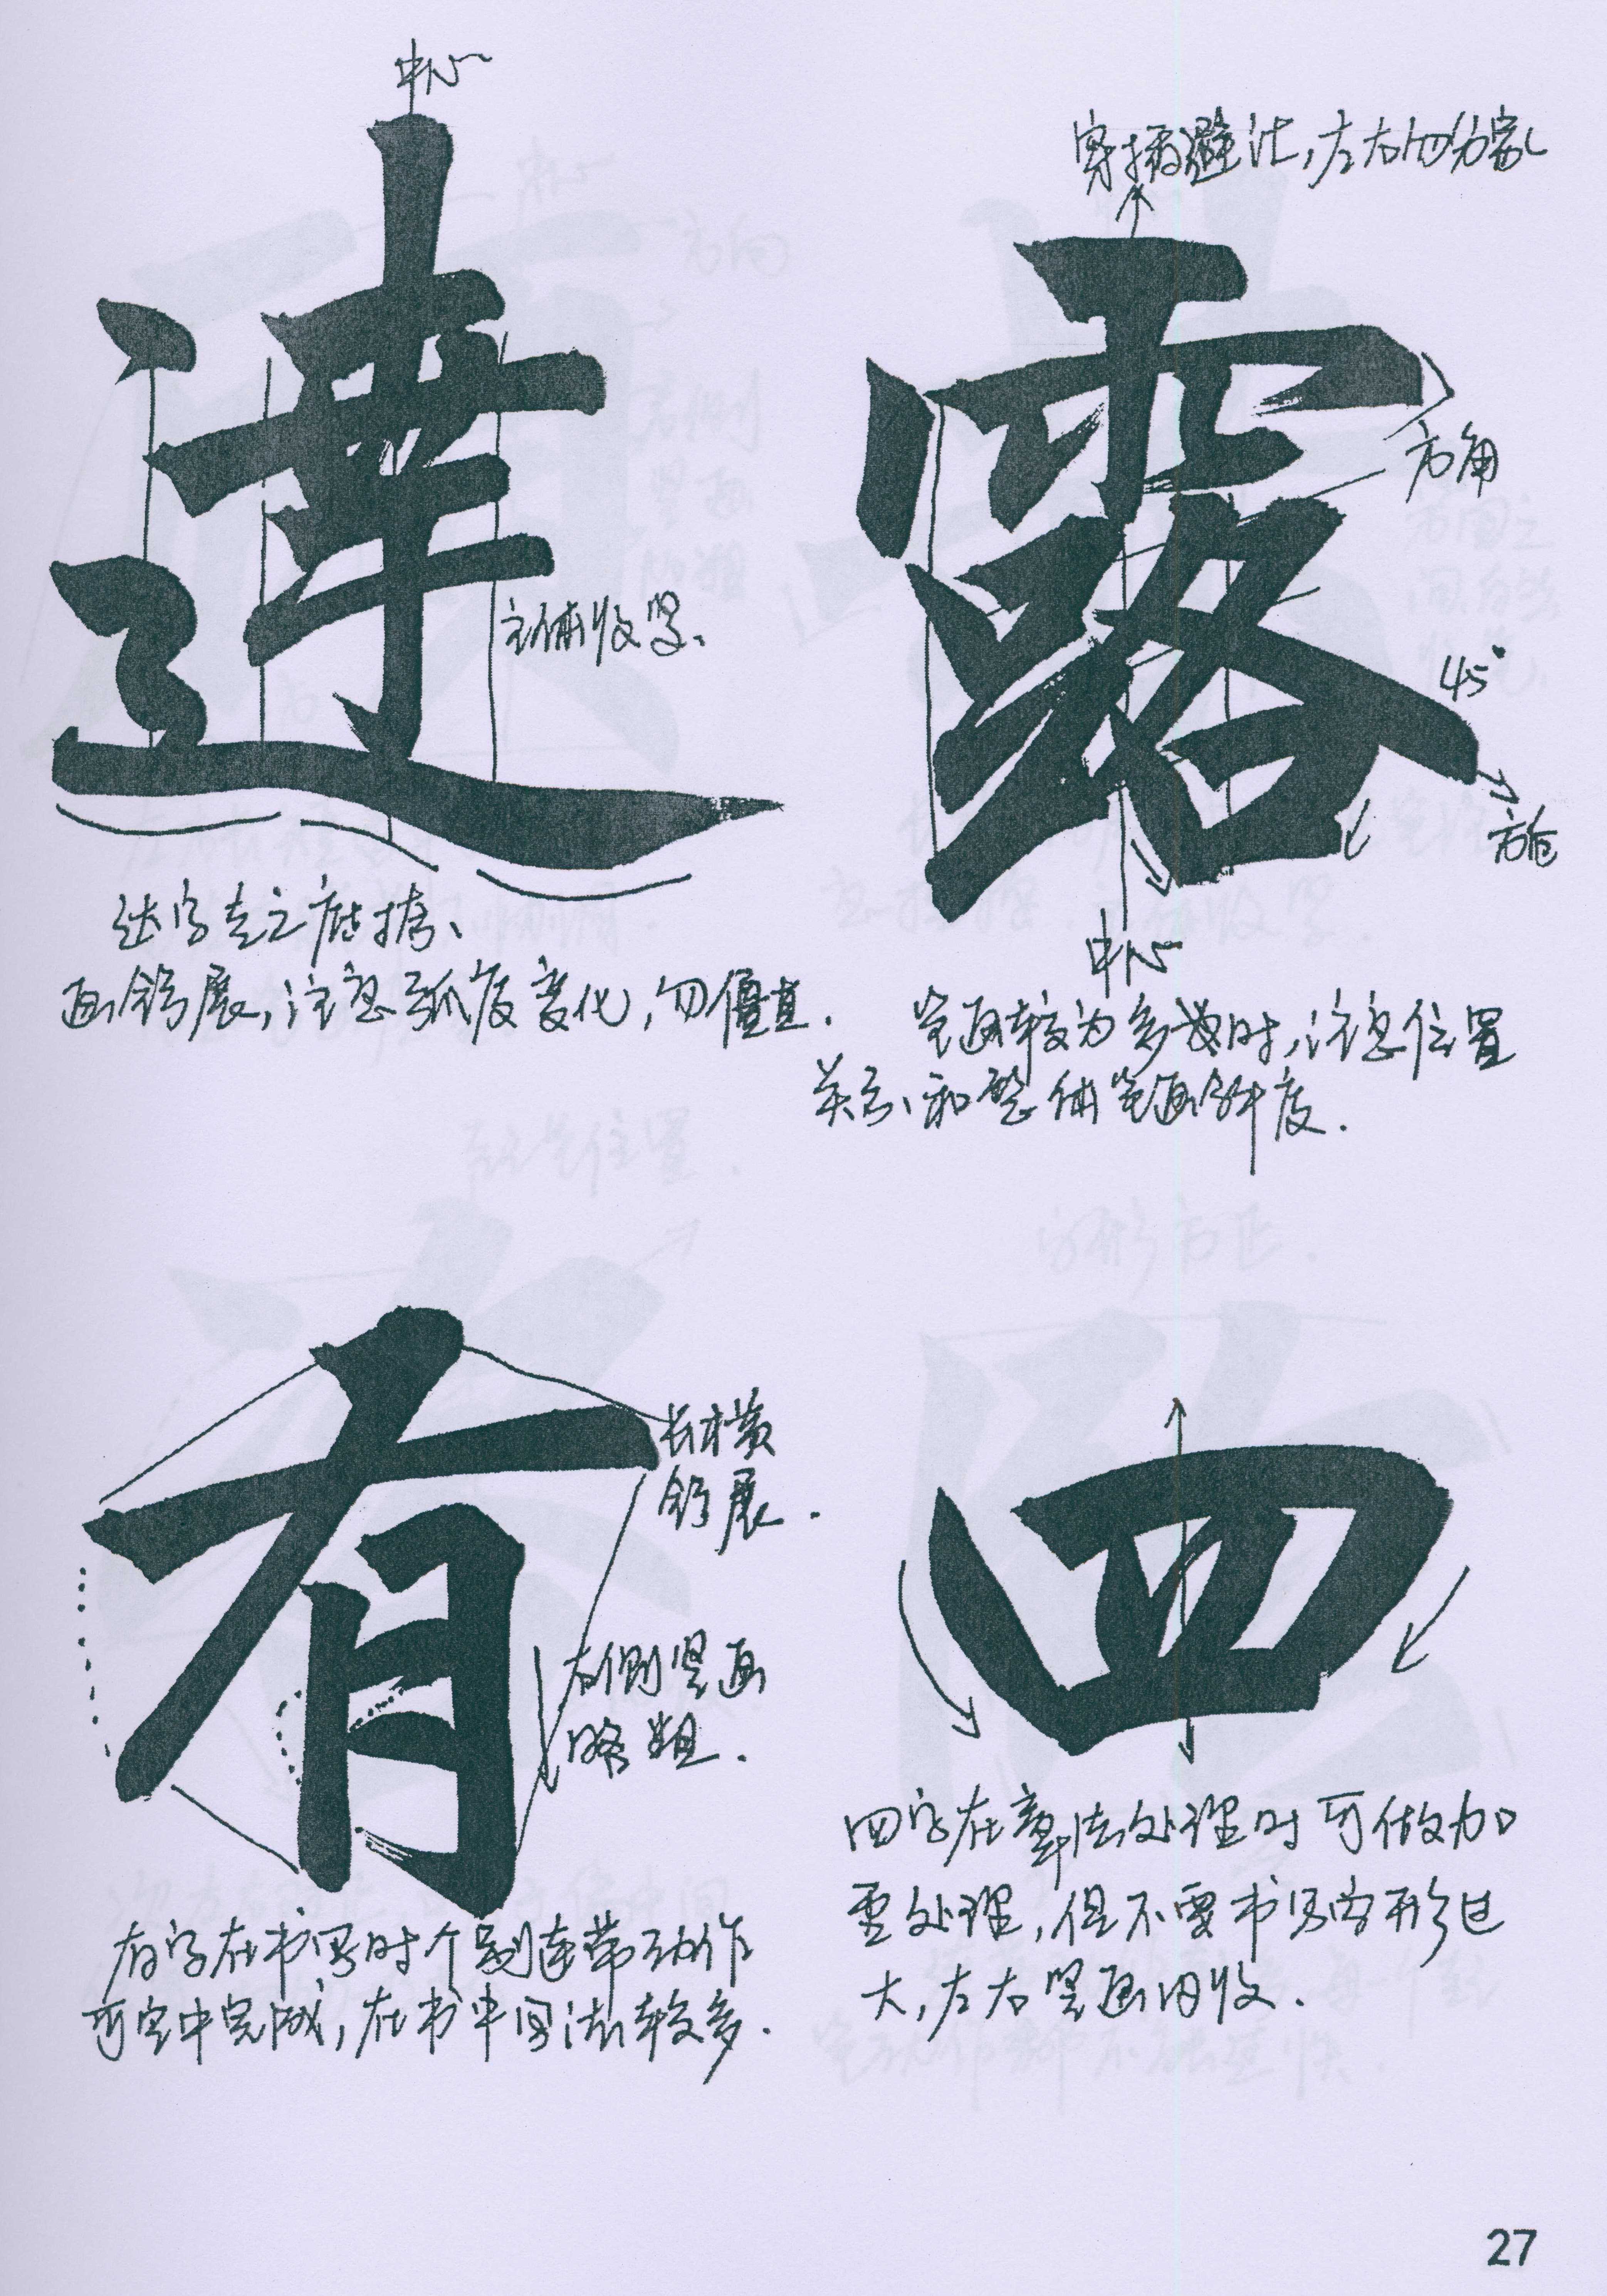 中心
達
主体收紧、
达字走之底捺、
画舒展,注意弧度变化,勿僵直.
穿插避让,左右勿分家
露
方角
45°
方
中心
笔画较为多数时,注意位置
关系、和整体笔画斜度.
有
长横
舒展.
右侧竖画
略粗.
有字在书写时个别连带动作
可空中完成,在书中写法较多.
四
四字在章法处理时可做加
重处理,但不要书写字形过
大,左右竖画内收.
27